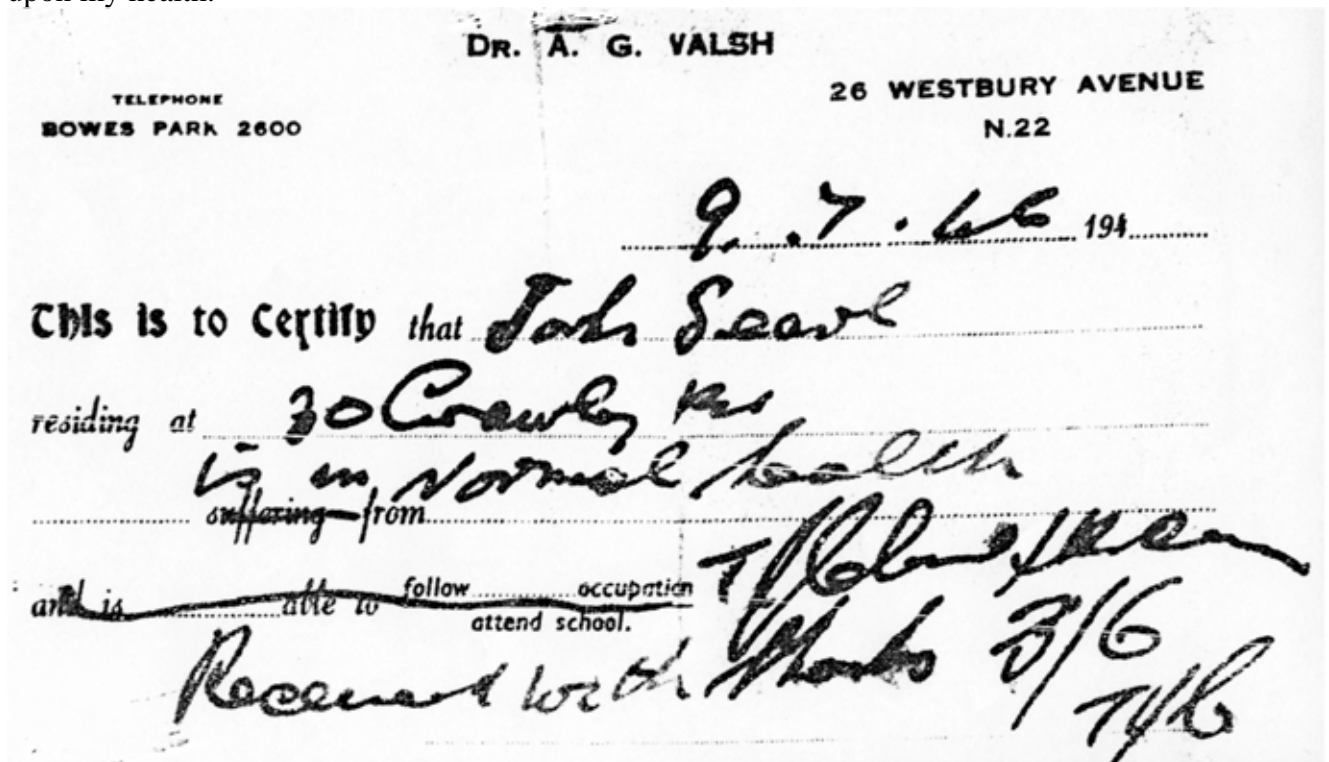 upon my health.
DR. A. G. VALSH
TELEPHONE
BOWES PARK 2600
26 WESTBURY AVENUE
N.22
9.7.46 194
This is to Certify that John Searl
residing at 30 Crawley Rd
is in Normal health
suffering from
and is able to follow occupation
attend school.
Received with thanks 3/6